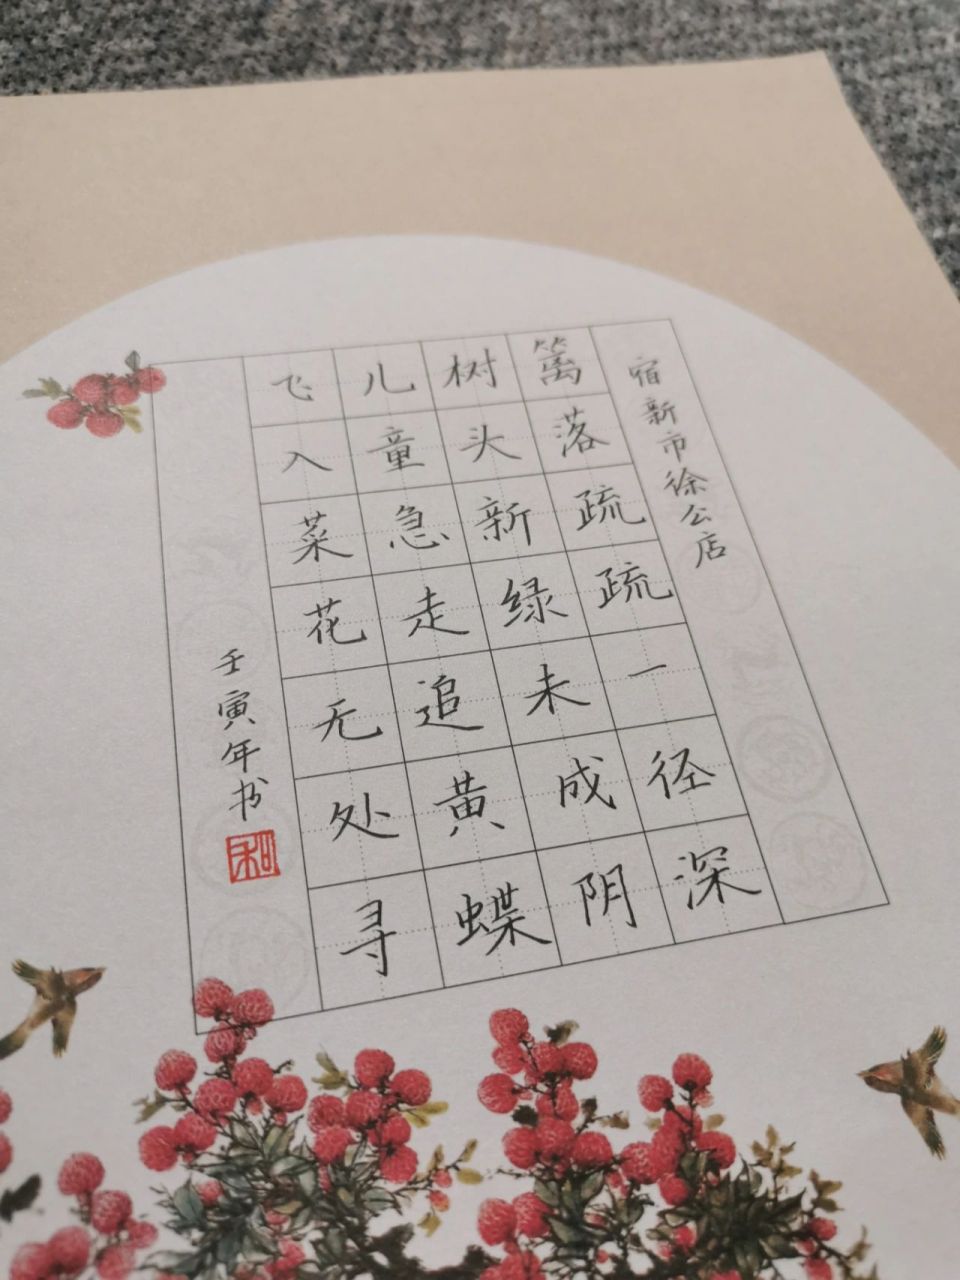 宿新市徐公店
篱落疏疏一径深
树头新绿未成阴
儿童急走追黄蝶
飞入菜花无处寻
壬寅年书
和